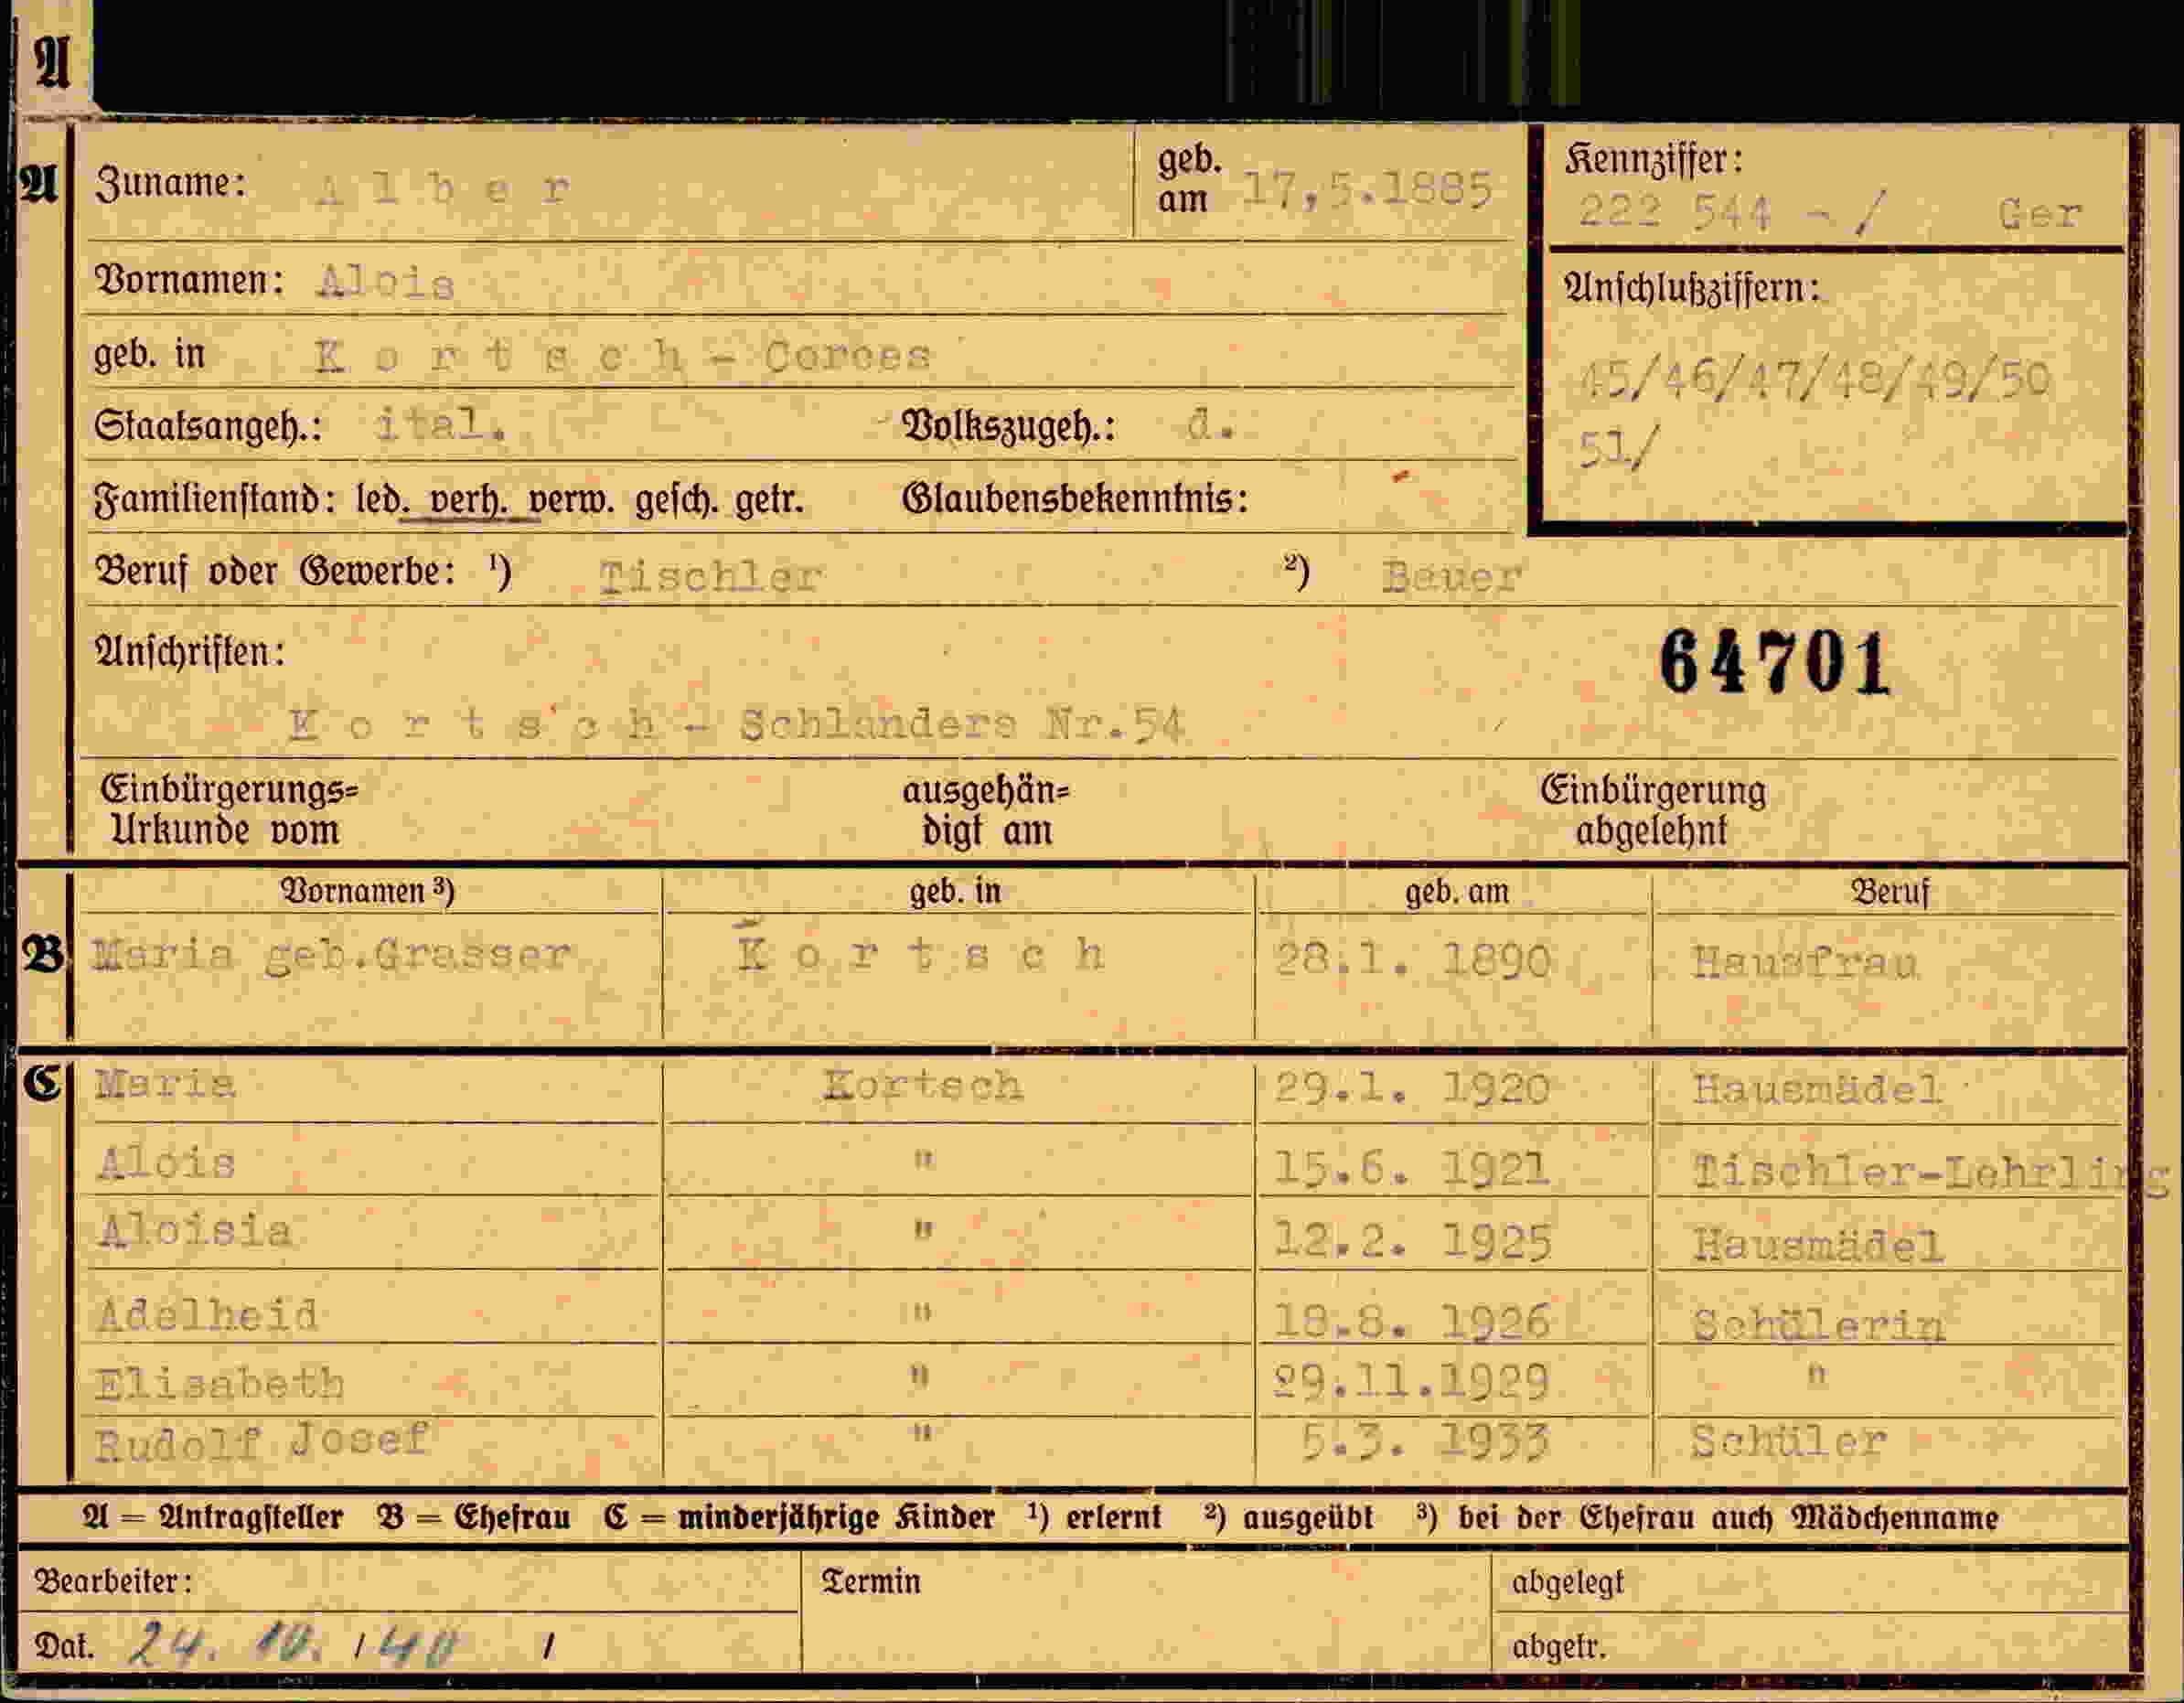 A
A Zuname: A l b e r geb. am 17,5.1885 Kennziffer:
222 544 - / Ger
Vornamen: Alois Anschlußziffern:
geb. in K o r t s c h - Corces
45/46/47/48/49/50
Staatsangeh.: ital. Volkszugeh.: d.
51/
Familienstand: led. verh. verw. gesch. getr. Glaubensbekenntnis:
Beruf oder Gewerbe: ¹) Tischler ²) Bauer
Anschriften: 64701
K o r t s c h - Schlanders Nr.54
Einbürgerungs= ausgehän= Einbürgerung
Urkunde vom digt am abgelehnt
Vornamen ³) geb. in geb. am Beruf
B Maria geb.Grasser K o r t s c h 28.1. 1890 Hausfrau
C Maria Kortsch 29.1. 1920 Hausmädel
Alois " 15.6. 1921 Tischler-Lehrling
Aloisia " 12.2. 1925 Hausmädel
Adelheid " 18.8. 1926 Schülerin
Elisabeth " 29.11.1929 "
Rudolf Josef " 5.3. 1933 Schüler
A = Antragsteller B = Ehefrau C = minderjährige Kinder ¹) erlernt ²) ausgeübt ³) bei der Ehefrau auch Mädchenname
Bearbeiter: Termin abgelegt
Dat. 24. 10. / 40 / abgetr.